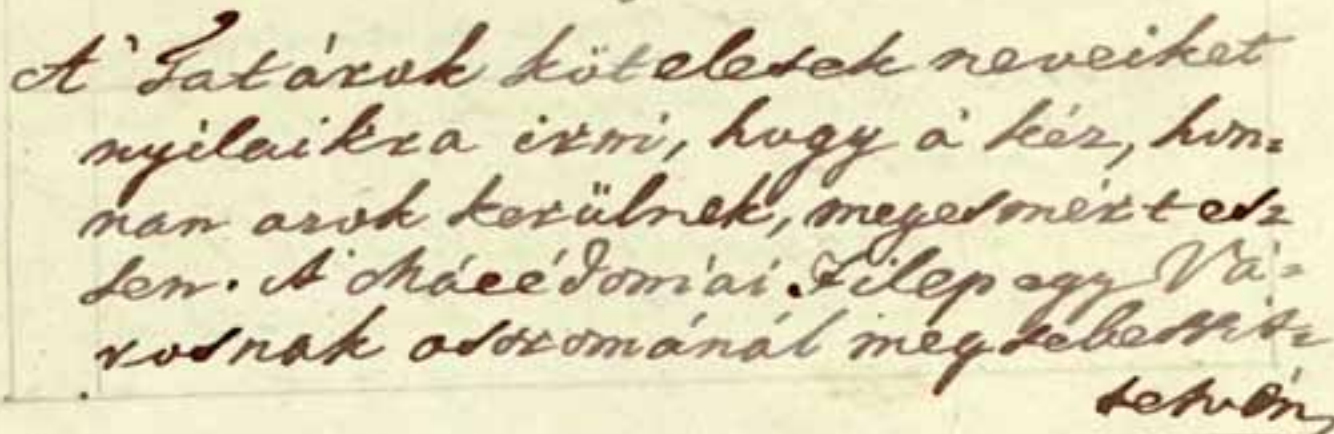 A' Tatárok kötelesek neveiket
nyilaikra irni, hogy a' kéz, hon=
nan azok kerülnek, megesmértes=
sen. A' Mácédoniai Filep egy Vá=
rosnak ostrománál megsebesit=
tetvén,